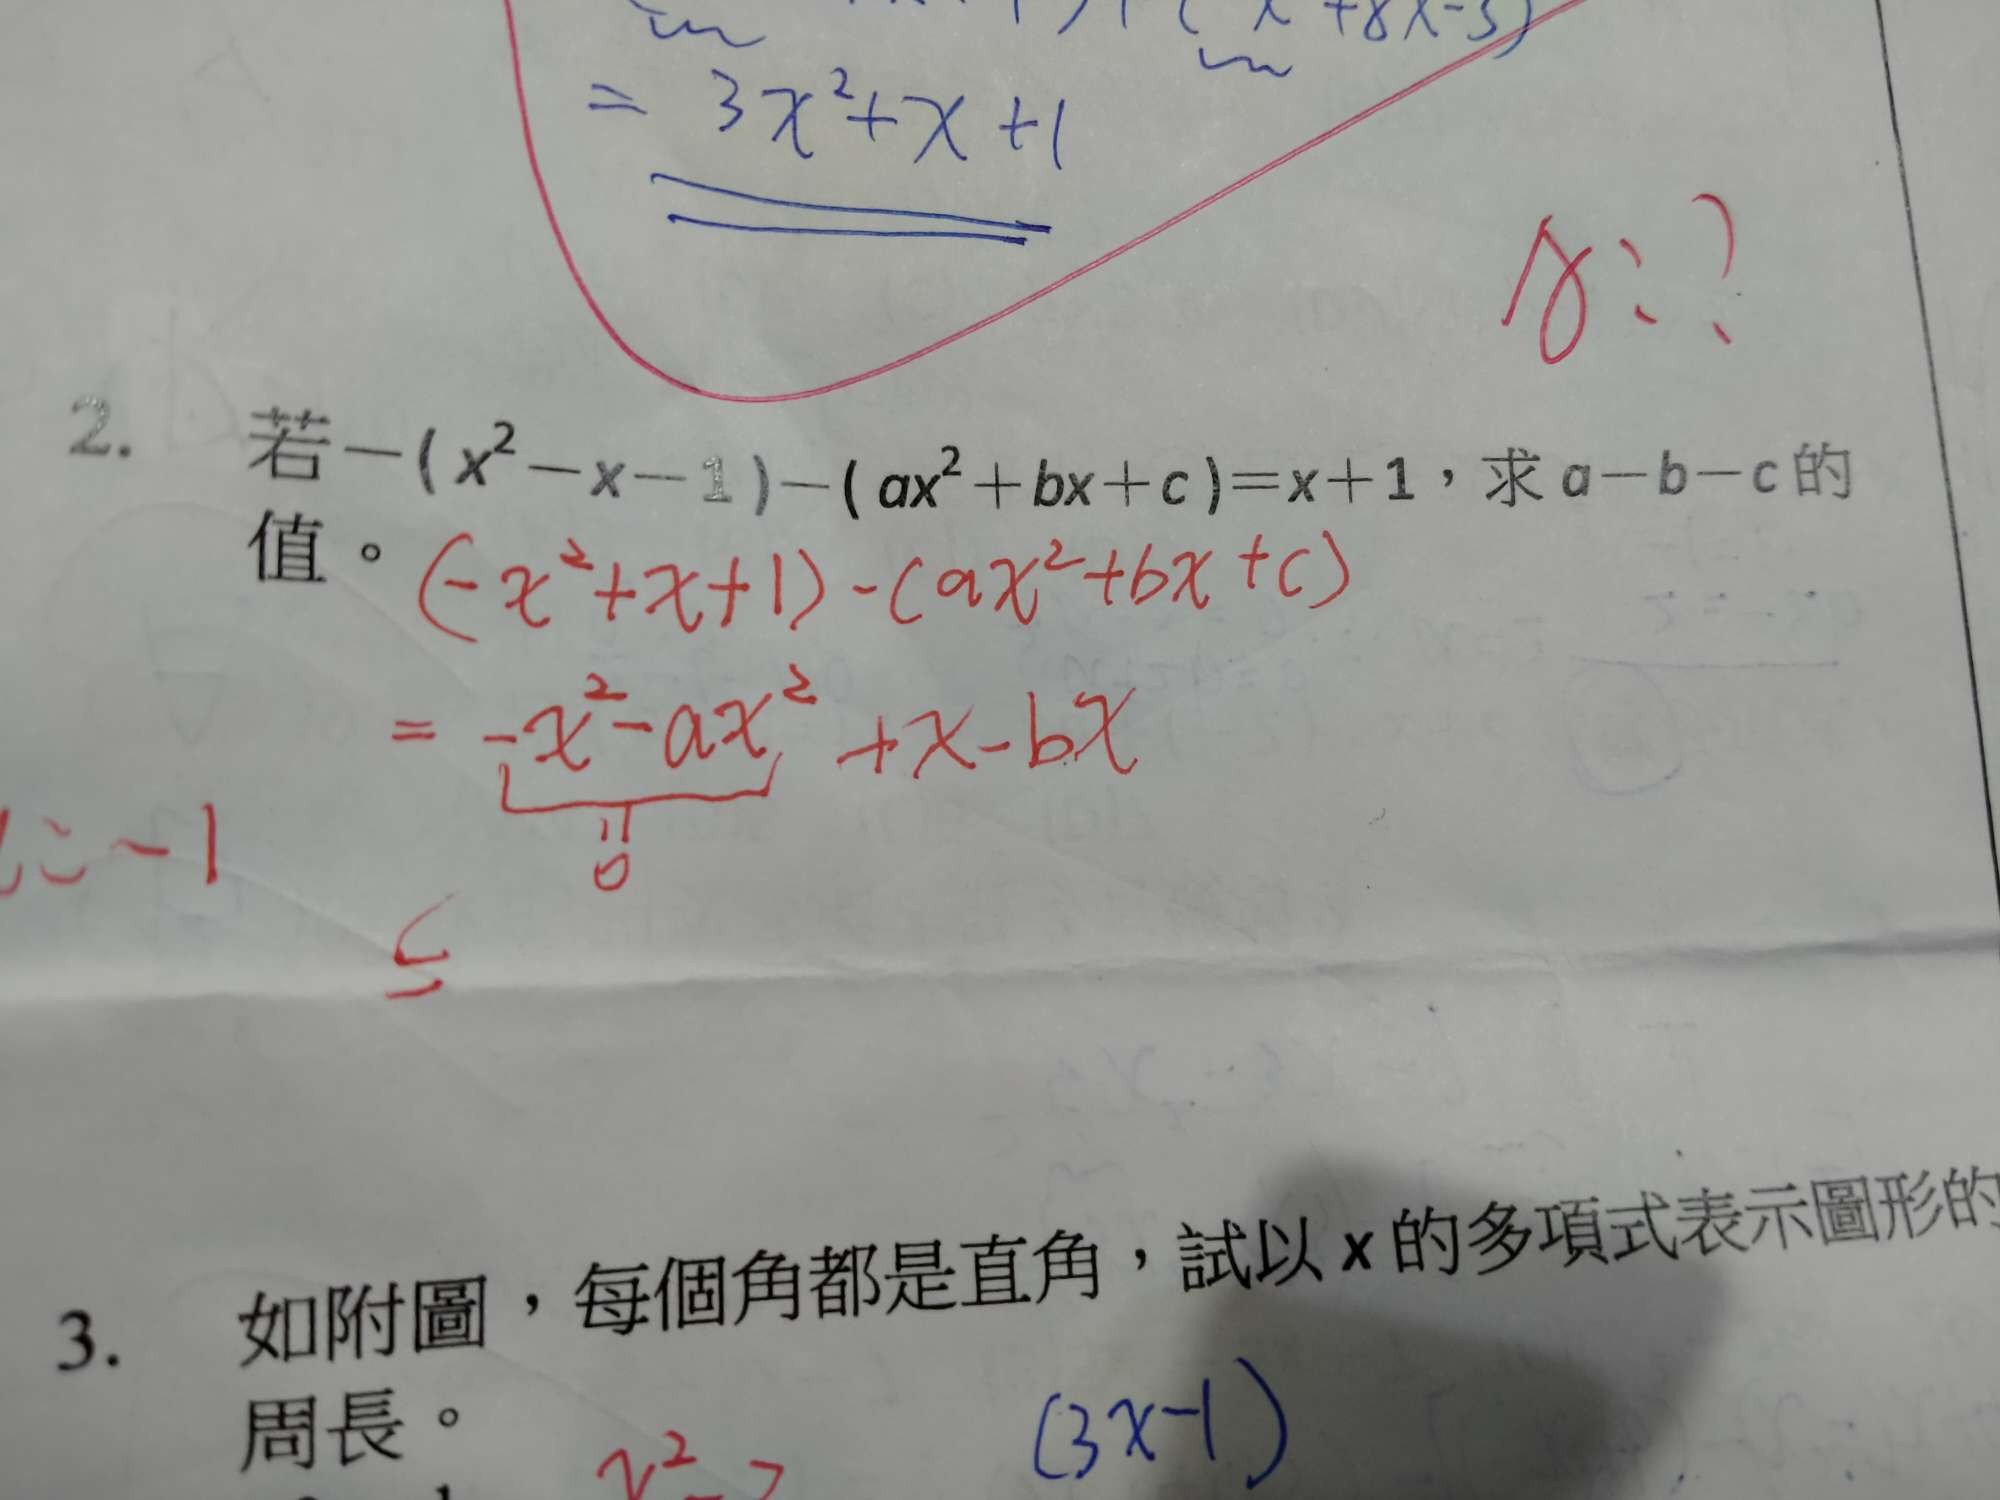 x²+8x-3)
= 3x²+x+1
2. 若－( x²－x－1 )－( ax²＋bx＋c )＝x＋1，求 a－b－c 的
值。(-x²+x+1)-(ax²+bx+c)
= -x²-ax²+x-bx
=-1
=0
3. 如附圖，每個角都是直角，試以 x 的多項式表示圖形的
周長。
(3x-1)